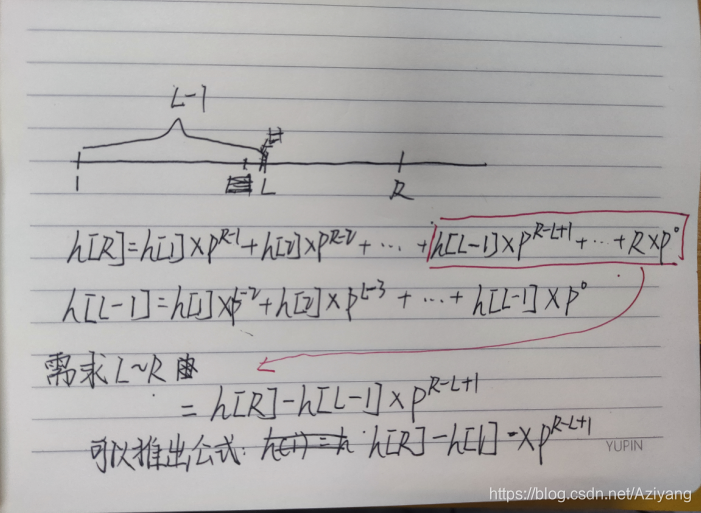 L-1
1 L R
h[R]=h[1]×P^{R-1}+h[2]×P^{R-2}+…+h[L-1]×P^{R-L+1}+…+R×P^0
h[L-1]=h[1]×P^{L-2}+h[2]×P^{L-3}+…+h[L-1]×P^0
需求L~R
=h[R]-h[L-1]×P^{R-L+1}
可以推出公式: h[R]-h[L]-×P^{R-L+1}
YUPIN
https://blog.csdn.net/Aziyang